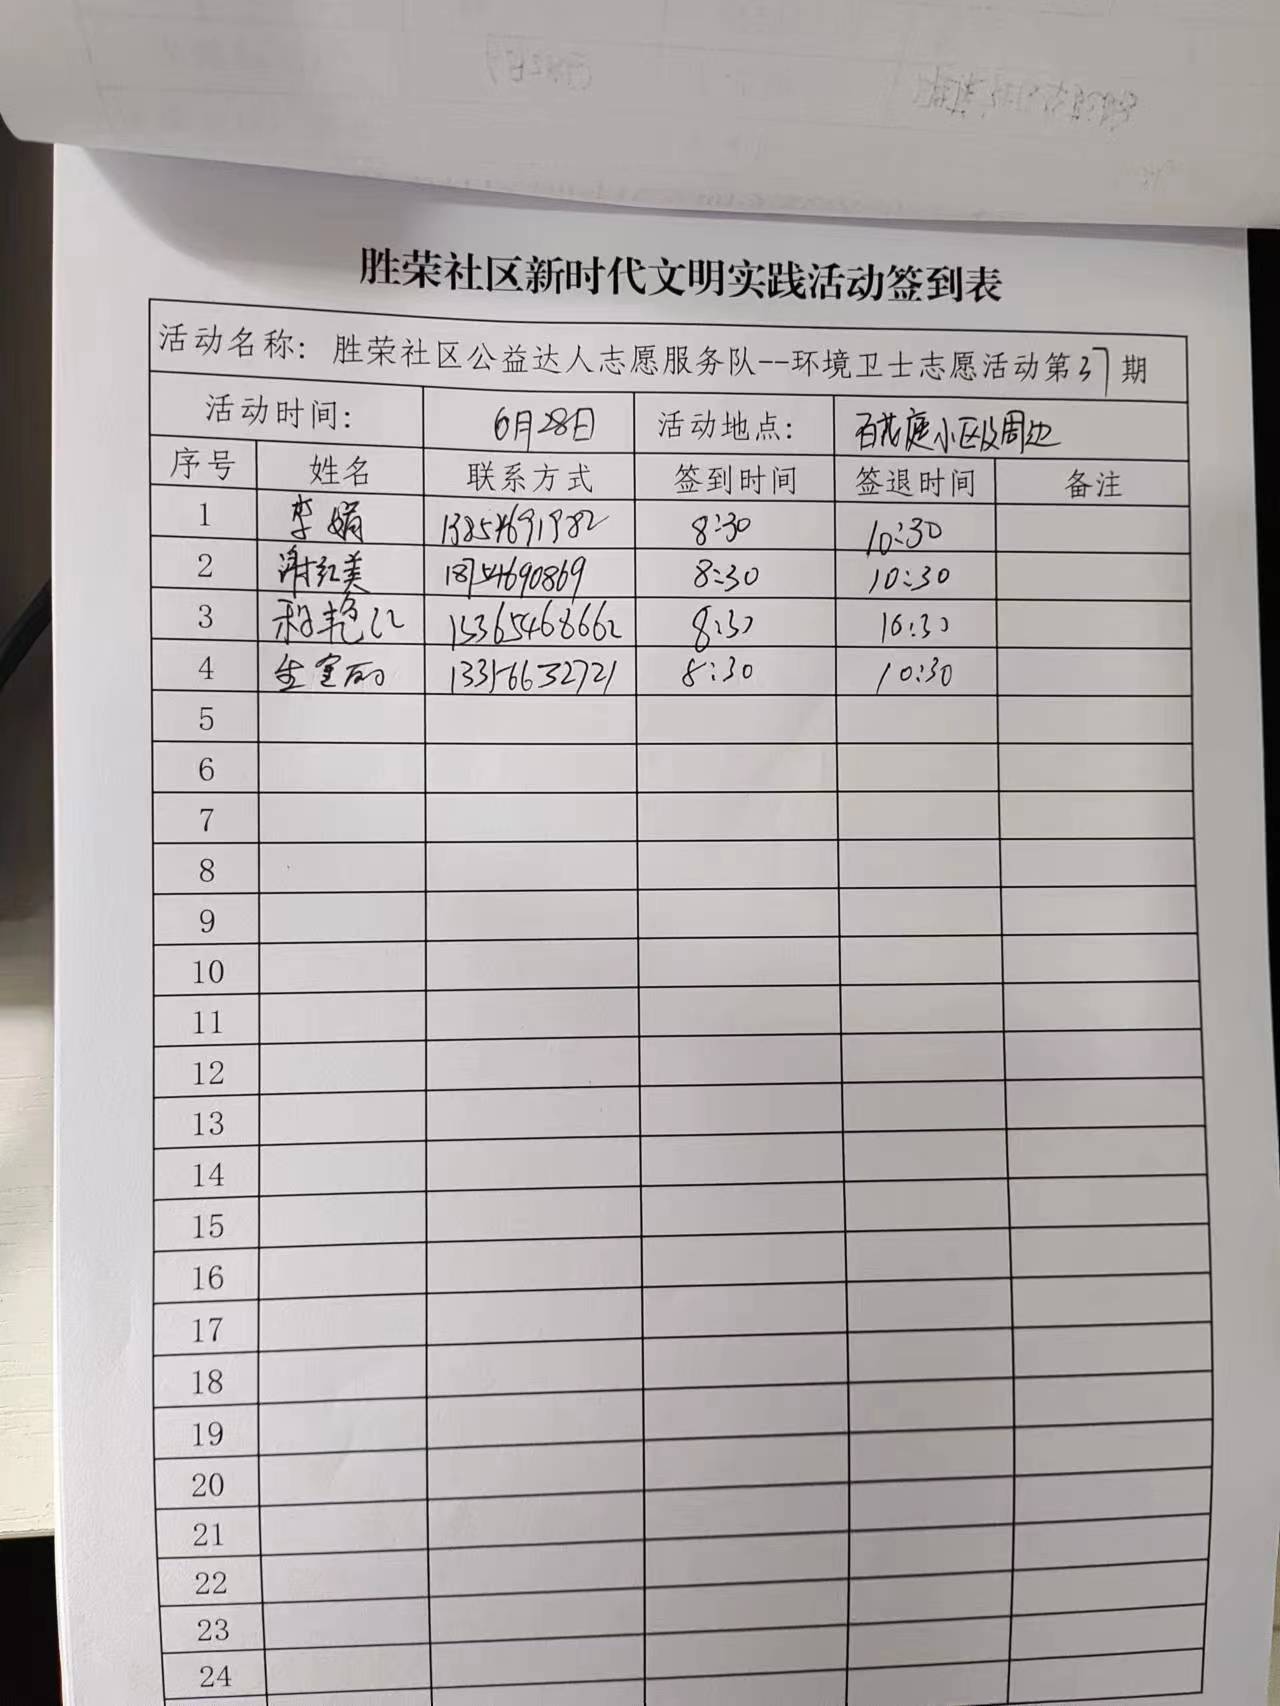 胜荣社区新时代文明实践活动签到表
活动名称：胜荣社区公益达人志愿服务队--环境卫士志愿活动第37期
活动时间： 6月28日 活动地点： 百花庭小区及周边
序号 姓名 联系方式 签到时间 签退时间 备注
1 李娟 8:30 10:30
2 谢红美 18754690869 8:30 10:30
3 15365468662 8:30 10:30
4 13356632721 8:30 10:30
5
6
7
8
9
10
11
12
13
14
15
16
17
18
19
20
21
22
23
24